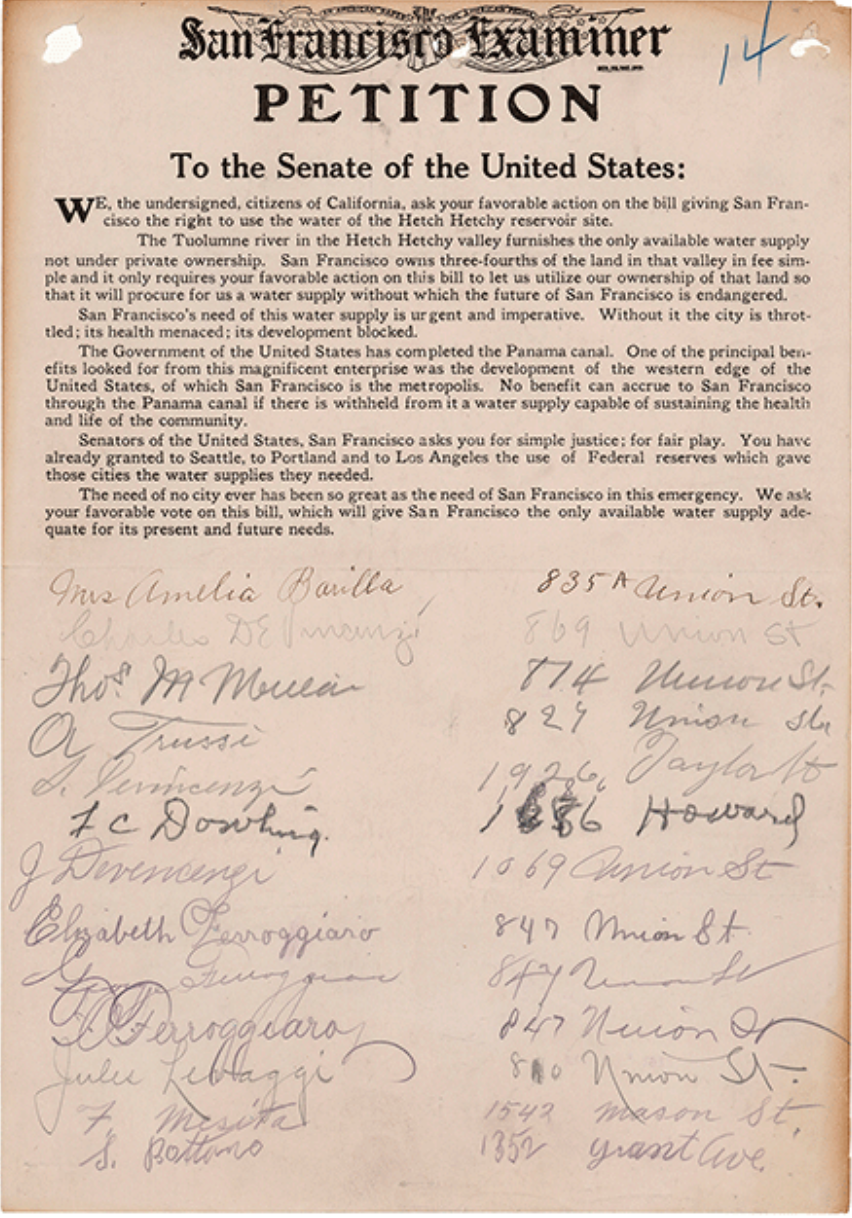 AN AMERICAN PAPER FOR THE AMERICAN PEOPLE
The
San Francisco Examiner
14
PETITION
To the Senate of the United States:
WE, the undersigned, citizens of California, ask your favorable action on the bill giving San Fran-
cisco the right to use the water of the Hetch Hetchy reservoir site.
The Tuolumne river in the Hetch Hetchy valley furnishes the only available water supply
not under private ownership. San Francisco owns three-fourths of the land in that valley in fee sim-
ple and it only requires your favorable action on this bill to let us utilize our ownership of that land so
that it will procure for us a water supply without which the future of San Francisco is endangered.
San Francisco's need of this water supply is urgent and imperative. Without it the city is throt-
tled; its health menaced; its development blocked.
The Government of the United States has completed the Panama canal. One of the principal ben-
efits looked for from this magnificent enterprise was the development of the western edge of the
United States, of which San Francisco is the metropolis. No benefit can accrue to San Francisco
through the Panama canal if there is withheld from it a water supply capable of sustaining the health
and life of the community.
Senators of the United States, San Francisco asks you for simple justice; for fair play. You have
already granted to Seattle, to Portland and to Los Angeles the use of Federal reserves which gave
those cities the water supplies they needed.
The need of no city ever has been so great as the need of San Francisco in this emergency. We ask
your favorable vote on this bill, which will give San Francisco the only available water supply ade-
quate for its present and future needs.
Mrs Amelia Barilla 835A Union St.
Charles DeVincenzi 869 Union St
Thos M 874 Union St.
Trussi Union
1926 Taylor St
F C Dowling. Howard
J Devencenzi 1069 Union St
Elizabeth Ferroggiaro 847 Union St.
847 Union St
Ferroggiaro 847 Union St
Jules Levaggi Union St.
F. 1542 Mason St.
S. Bottano 1352 Grant Ave.